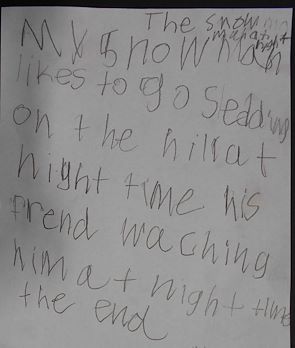 The snowman
man at night
My snow man
likes to go Sledding
on the hill at
night time his
frend waching
him at night time
the end